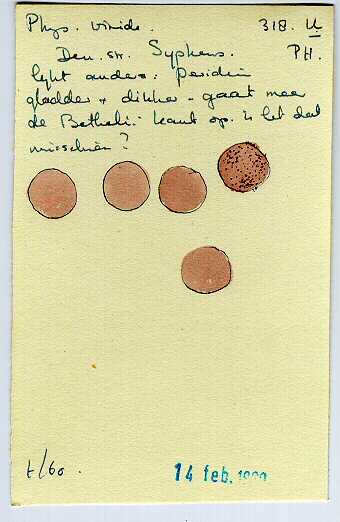 Phys. viride. 318. U
Den. str. Syphens. PH.
lijkt anders: peridie
gladder + dikker - gaat meer
de Bethelii kant op. is het dat
misschien?
t/60.
14 feb.